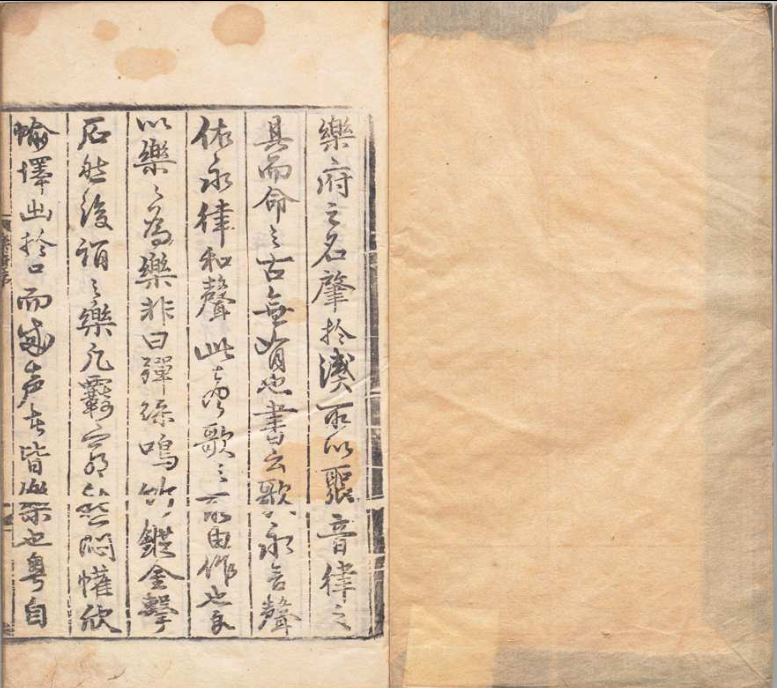 樂府之名肇於漢所以聚音律之
具而命之古無有也書云歌永言聲
依永律和聲此音歌之所由作也
以樂之為樂非曰彈絲鳴竹鏦金擊
石然後謂之樂凡羈窮愁悶懽欣
愉懌出於口而成声者皆樂也粵自